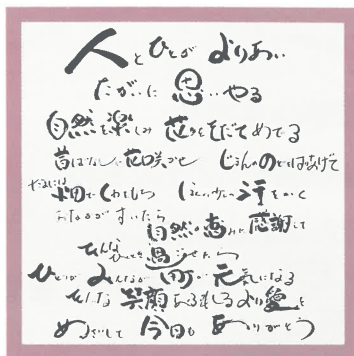 人とひとが よりあい
たがいに 思いやる
自然を楽しみ 花々をそだてめでる
昔ばなしに花咲かせ じまんののどはりあげて
ときには畑でくわをもち 汗をかく
おなかがすいたら
自然の恵みに感謝して
そんなひとときを過ごせたら
ひとが みんなが 町が 元気になる
そんな 笑顔あふれる より愛を
めざして 今日も ありがとう